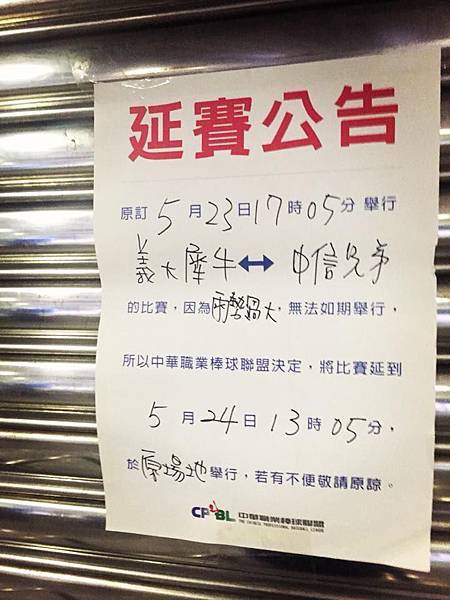 延賽公告
原訂 5 月 23 日 17 時 05 分 舉行
義大犀牛 ↔ 中信兄弟
的比賽，因為雨勢過大，無法如期舉行，
所以中華職業棒球聯盟決定，將比賽延到
5 月 24 日 13 時 05 分，
於原場地舉行，若有不便敬請原諒。
CPBL 中華職業棒球聯盟
THE CHINESE PROFESSIONAL BASEBALL LEAGUE